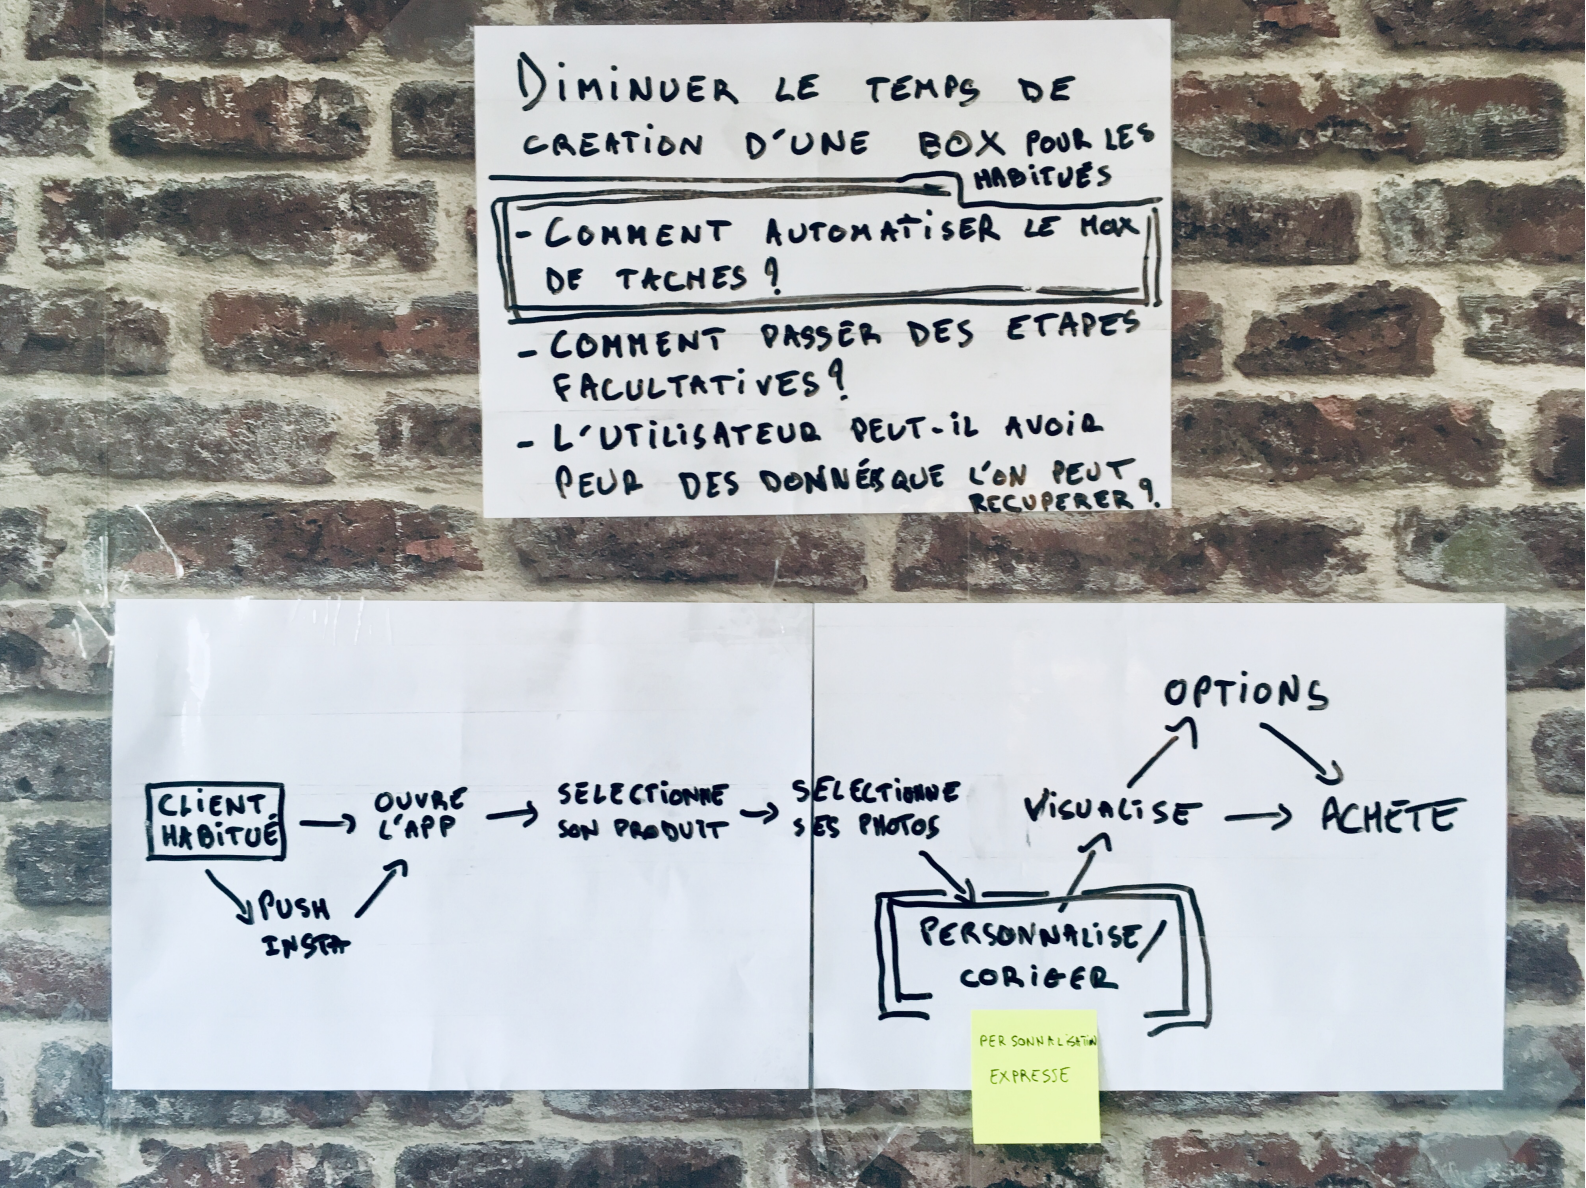 DIMINUER LE TEMPS DE
CREATION D'UNE BOX POUR LES
HABITUÉS
- COMMENT AUTOMATISER LE MAX
DE TACHES ?
- COMMENT PASSER DES ETAPES
FACULTATIVES ?
- L'UTILISATEUR PEUT-IL AVOIR
PEUR DES DONNÉES QUE L'ON PEUT
RECUPERER ?
CLIENT
HABITUÉ
PUSH
INSTA
OUVRE
L'APP
SELECTIONNE
SON PRODUIT
SELECTIONNE
SES PHOTOS
PERSONNALISE/
CORIGER
PERSONNALISATIN
EXPRESSE
VISUALISE
OPTIONS
ACHETE